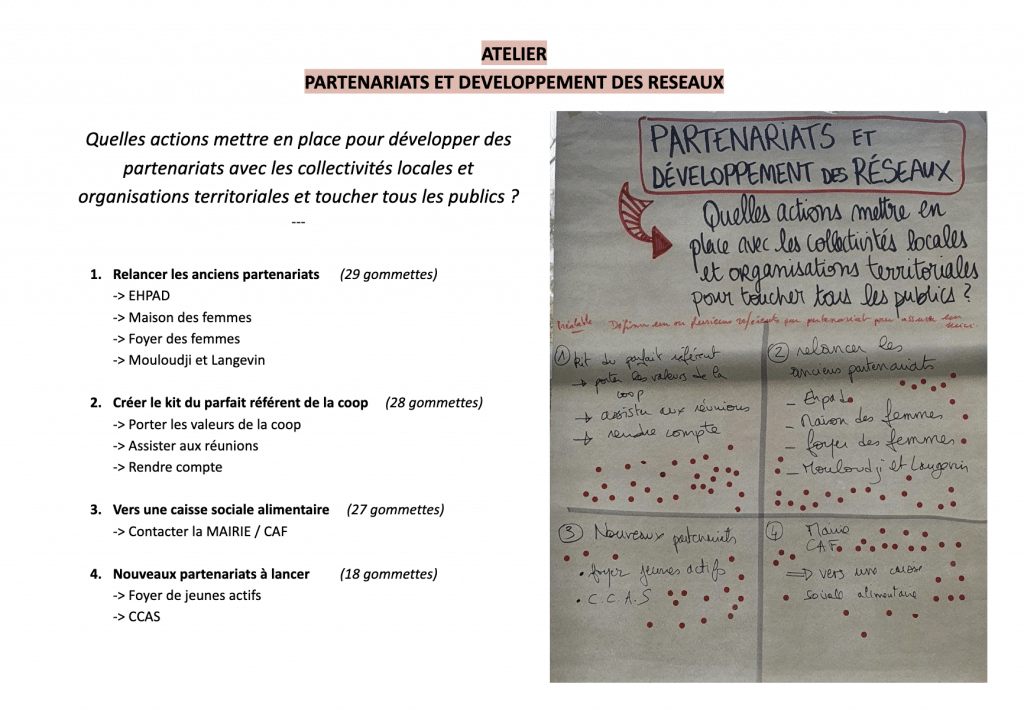 ATELIER
PARTENARIATS ET DEVELOPPEMENT DES RESEAUX
Quelles actions mettre en place pour développer des
partenariats avec les collectivités locales et
organisations territoriales et toucher tous les publics ?
---
1. Relancer les anciens partenariats (29 gommettes)
-> EHPAD
-> Maison des femmes
-> Foyer des femmes
-> Mouloudji et Langevin
2. Créer le kit du parfait référent de la coop (28 gommettes)
-> Porter les valeurs de la coop
-> Assister aux réunions
-> Rendre compte
3. Vers une caisse sociale alimentaire (27 gommettes)
-> Contacter la MAIRIE / CAF
4. Nouveaux partenariats à lancer (18 gommettes)
-> Foyer de jeunes actifs
-> CCAS
PARTENARIATS ET
DÉVELOPPEMENT DES RÉSEAUX
Quelles actions mettre en
place avec les collectivités locales
et organisations territoriales
pour toucher tous les publics ?
Préalable Définir un ou plusieurs référents par partenariat pour assurer
1 Kit du parfait référent
→ porter les valeurs de la
coop
→ assister aux réunions
→ rendre compte
2 relancer les
anciens partenariats
- Ehpad
- Maison des femmes
- foyer des femmes
- Mouloudji et Langevin
3 Nouveaux partenariats
• foyer jeunes actifs
• C.C.A.S
4 Mairie
CAF
⇒ vers une caisse
sociale alimentaire